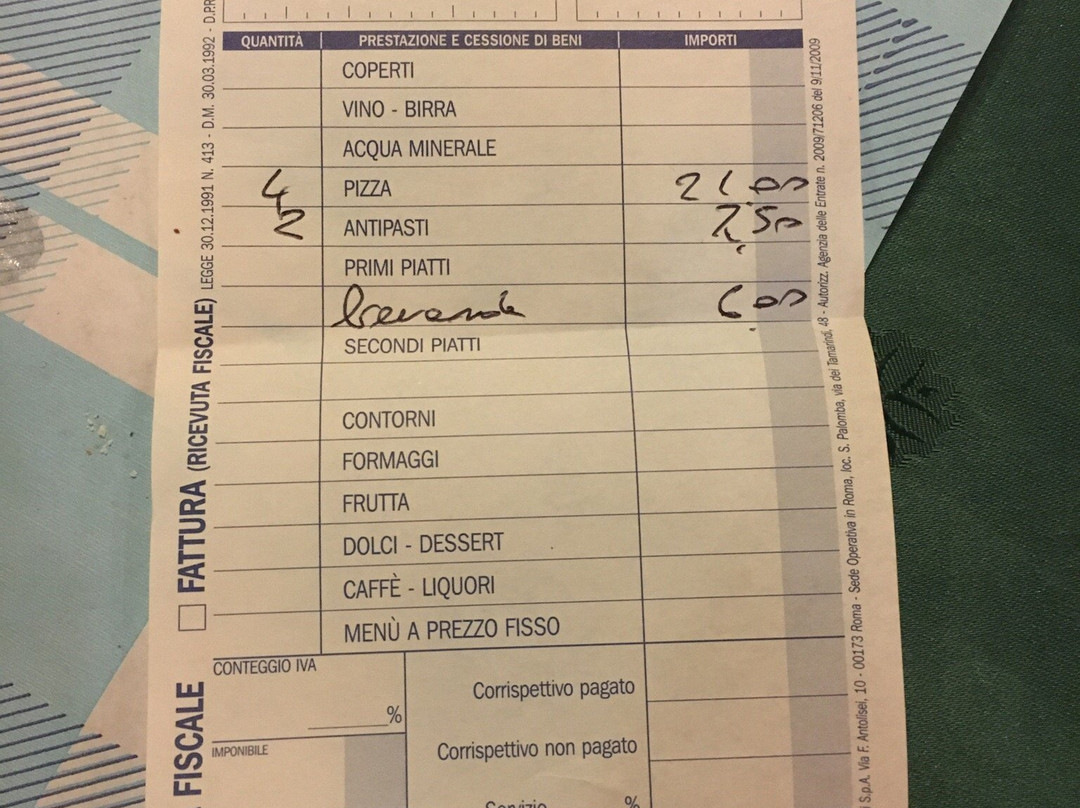 QUANTITÀ PRESTAZIONE E CESSIONE DI BENI IMPORTI
COPERTI
VINO - BIRRA
ACQUA MINERALE
4 PIZZA 21,00
2 ANTIPASTI 7,50
PRIMI PIATTI
bevande 6,00
SECONDI PIATTI
CONTORNI
FORMAGGI
FRUTTA
DOLCI - DESSERT
CAFFÈ - LIQUORI
MENÙ A PREZZO FISSO
CONTEGGIO IVA
%
IMPONIBILE
Corrispettivo pagato
Corrispettivo non pagato
Servizio %
FATTURA (RICEVUTA FISCALE) LEGGE 30.12.1991 N. 413 - D.M. 30.03.1992 - D.P.R
FISCALE
S.p.A. Via F. Antolisei, 10 - 00173 Roma - Sede Operativa in Roma, loc. S. Palomba, via dei Tamarindi, 48 - Autorizz. Agenzia delle Entrate n. 2009/71206 del 9/11/2009